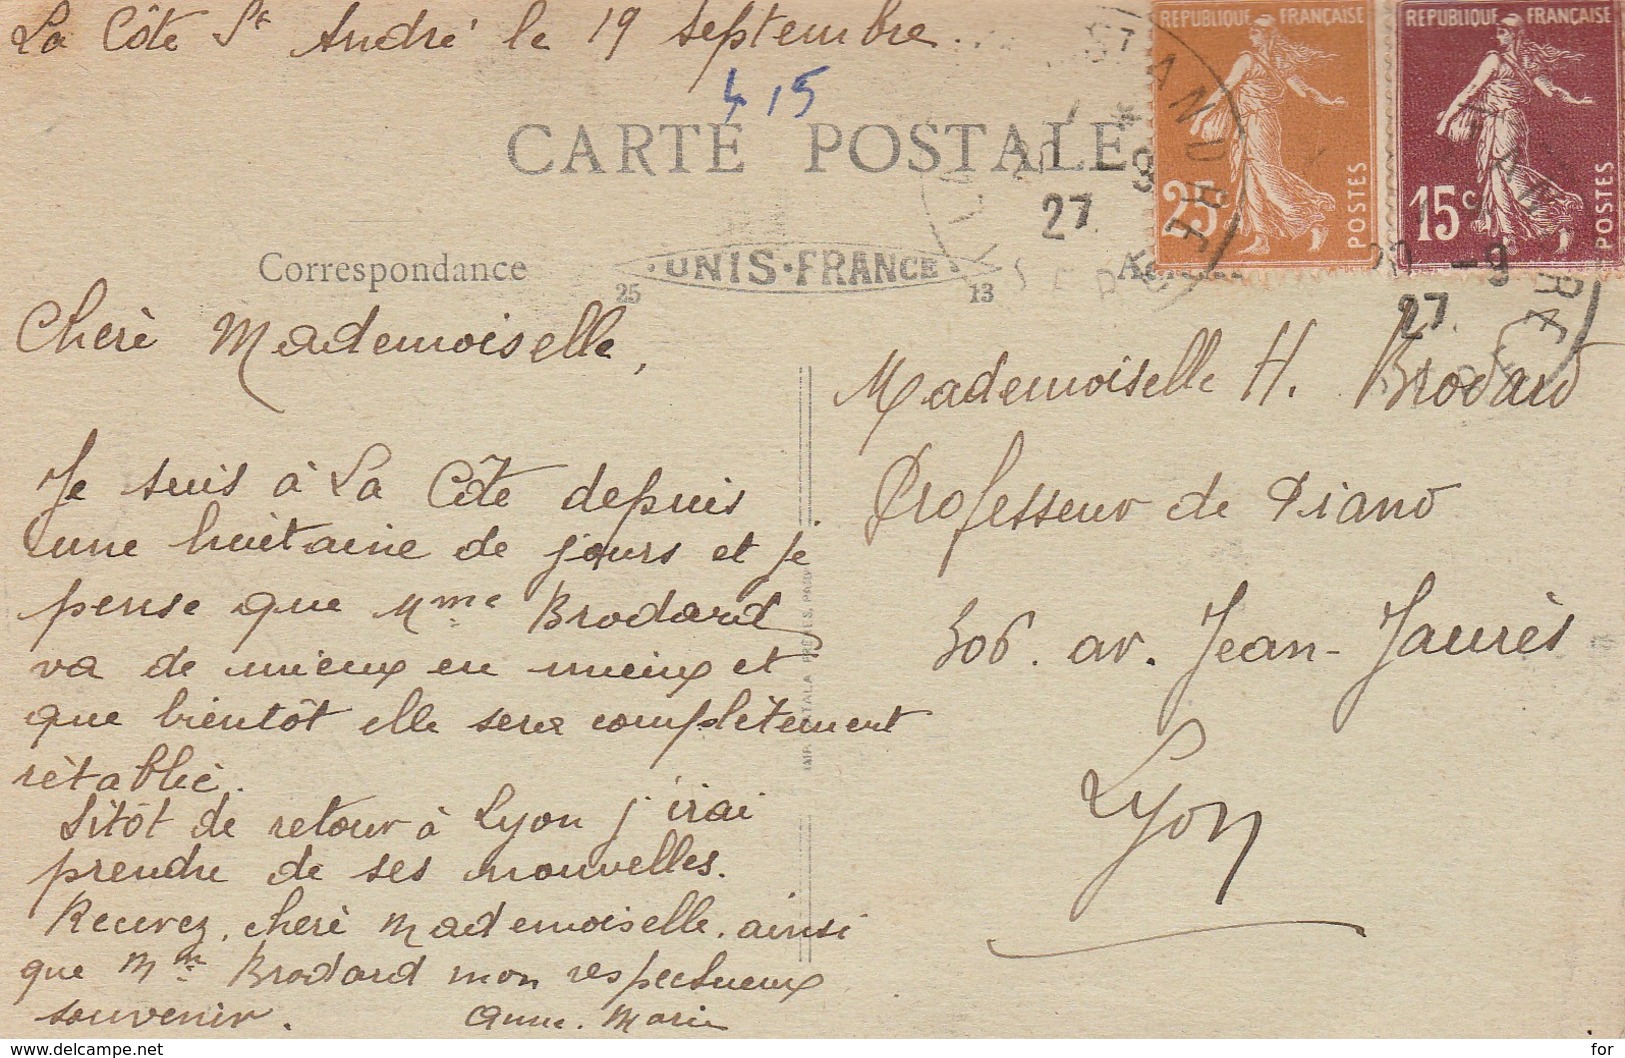 La Côte St André le 19 Septembre..
415
CARTE POSTALE
RÉPUBLIQUE FRANÇAISE
25
POSTES
RÉPUBLIQUE FRANÇAISE
15c
POSTES
27
27
-9
Correspondance
UNIS-FRANCE
25
13
Cherè Mademoiselle,
Je suis à La Côte depuis
une huitaine de jours et je
pense que Mme Brodard
va de mieux en mieux et
que bientôt elle sera complètement
rètabliè.
Sitôt de retour à Lyon j'irai
prendre de ses nouvelles.
Recevez, cherè Mademoiselle, ainsi
que Mm Brodard mon respectueux
souvenir.
Anne-Marie
Mademoiselle H. Brodard
Professeur de Piano
306. av. Jean-Jaurès
Lyon
www.delcampe.net
for